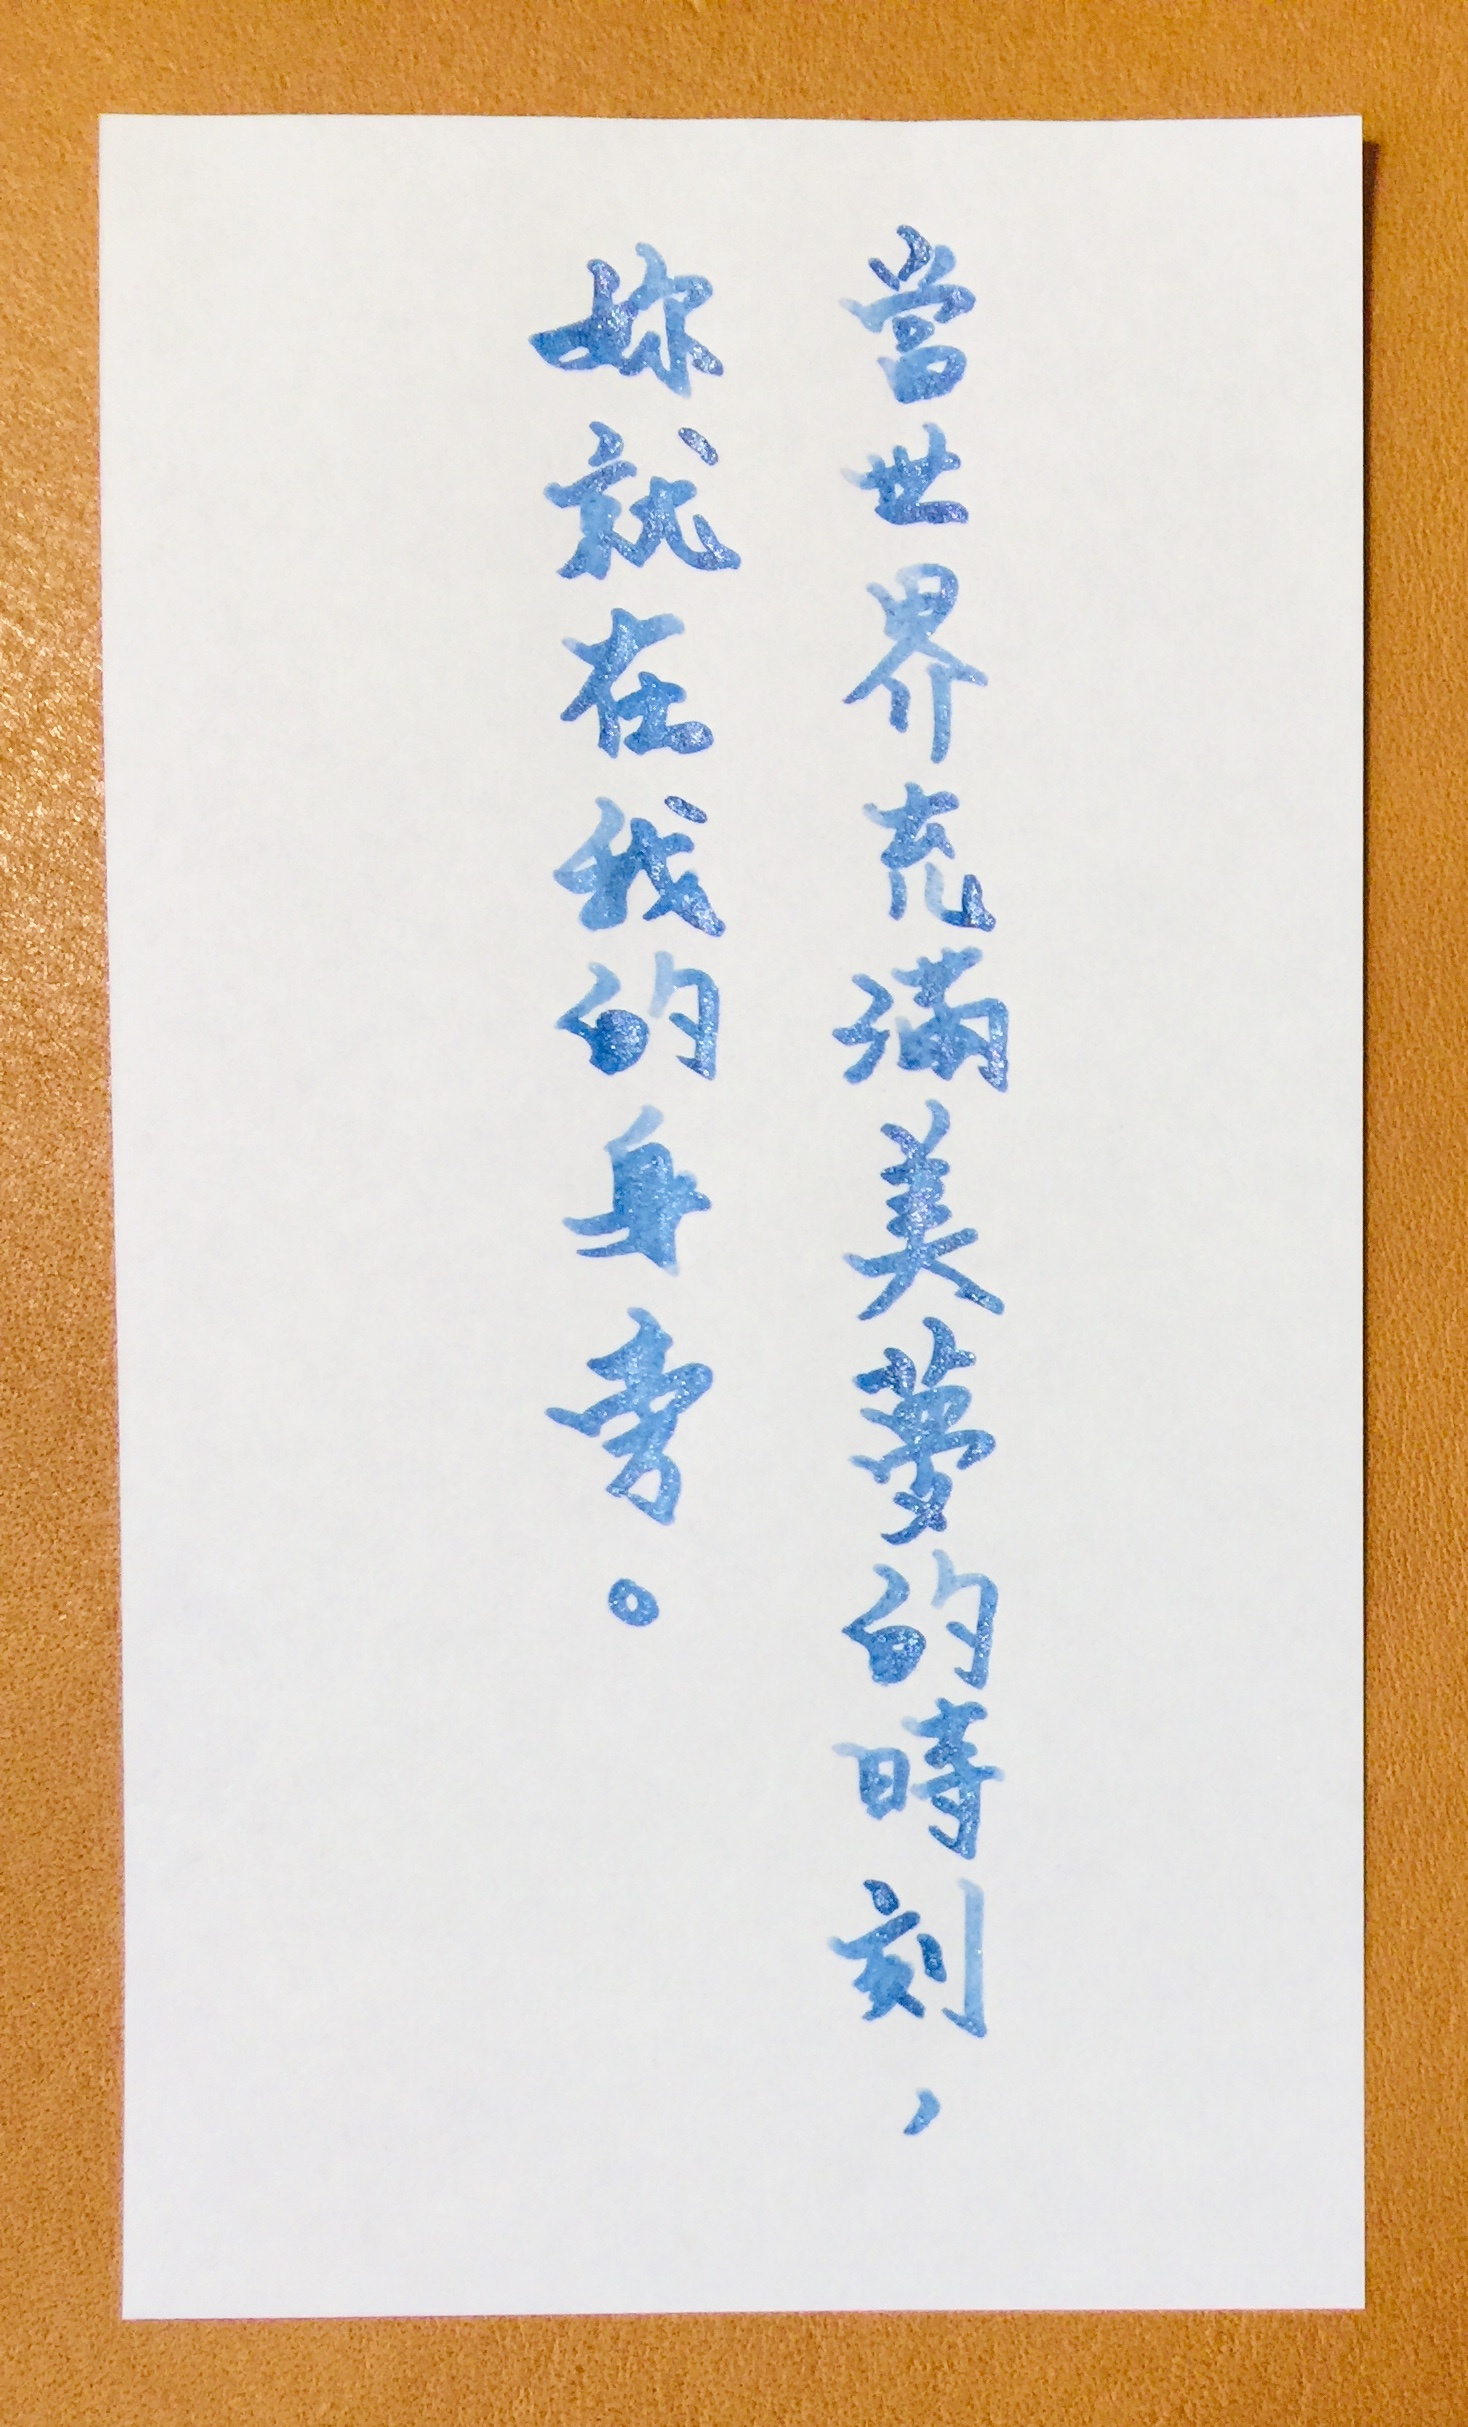 當世界充滿美夢的時刻，
妳就在我的身旁。